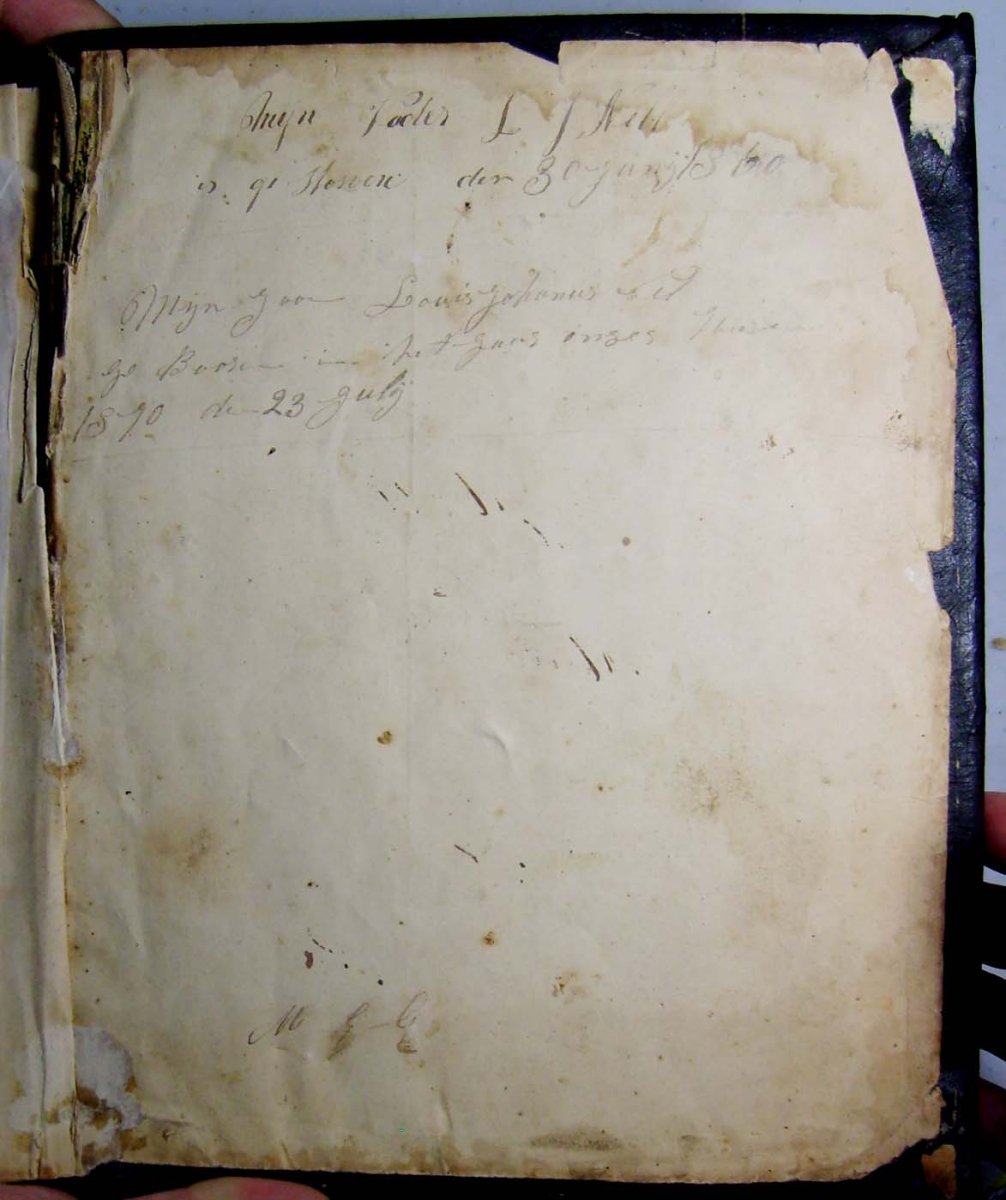 Mijn Vader L J Nel
is ge storven den 30 Junij 1860
Mijn Zoon Louis Johannus Nel
ge Booren in het Jaar onzes Heeren
1870 den 23 July
M